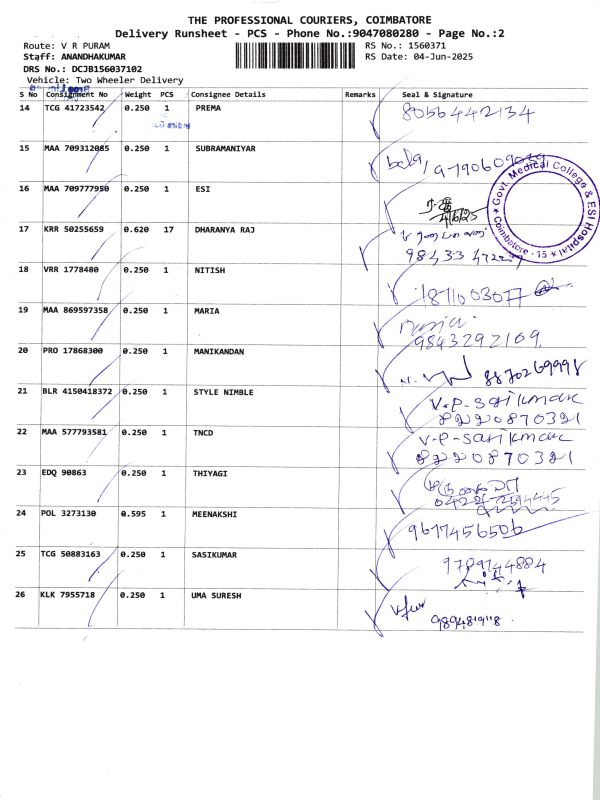 THE PROFESSIONAL COURIERS, COIMBATORE
Delivery Runsheet - PCS - Phone No.:9047080280 - Page No.:2
Route: V R PURAM
RS No.: 1560371
Staff: ANANDHAKUMAR
RS Date: 04-Jun-2025
DRS No.: DCJB156037102
Vehicle: Two Wheeler Delivery
S No Consignment No Weight PCS Consignee Details Remarks Seal & Signature
14 TCG 41723542 0.250 1 PREMA 8056442134
15 MAA 709312085 0.250 1 SUBRAMANIYAR
16 MAA 709777950 0.250 1 ESI 4/6/25
Govt. Medical College & ESI Hospital
Coimbatore - 15
17 KRR 50255659 0.620 17 DHARANYA RAJ
18 VRR 1778480 0.250 1 NITISH
19 MAA 869597358 0.250 1 MARIA
9843292169
20 PRO 17868300 0.250 1 MANIKANDAN 8870269998
21 BLR 4150418372 0.250 1 STYLE NIMBLE V.P-Sasikumar
8220870321
22 MAA 577793581 0.250 1 TNCD V-P-Sasikumar
8220870321
23 EDQ 90863 0.250 1 THIYAGI
24 POL 3273130 0.595 1 MEENAKSHI 9617456506
25 TCG 50883163 0.250 1 SASIKUMAR 9789744884
26 KLK 7955718 0.250 1 UMA SURESH
9894819118